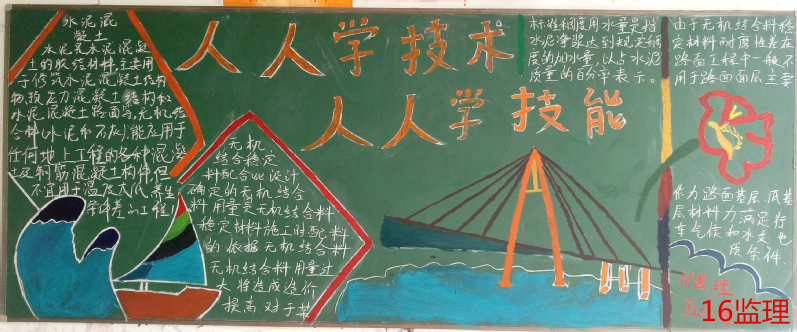 水泥混
凝土
水泥是水泥混凝
土的胶结材料,主要用
于修筑水泥混凝土结构
物,预应力混凝土结构和
水泥混凝土路面与无机结
合料(水泥和石灰),能应用于
任何地上工程的各种混凝
土及钢筋混凝土构件但
不宜用于温度太低养生
条件差的工程
人人学技术
人人学技能
无机
结合稳定
料配合比设计
确定的无机结合
料用量是无机结合料
稳定材料施工时配料
的依据无机结合料
无机结合料用量过
大将造成造价
提高对于某
标准稠度用水量是指
水泥净浆达到规定稠
度的加水量,以占水泥
质量的百分率表示。
由于无机结合料稳
定材料耐磨性差在
路面工程中一般不
用于路面面层主要
作为路面基层、底基
层材料力满足行
车气候和水文地
质条件
16监理